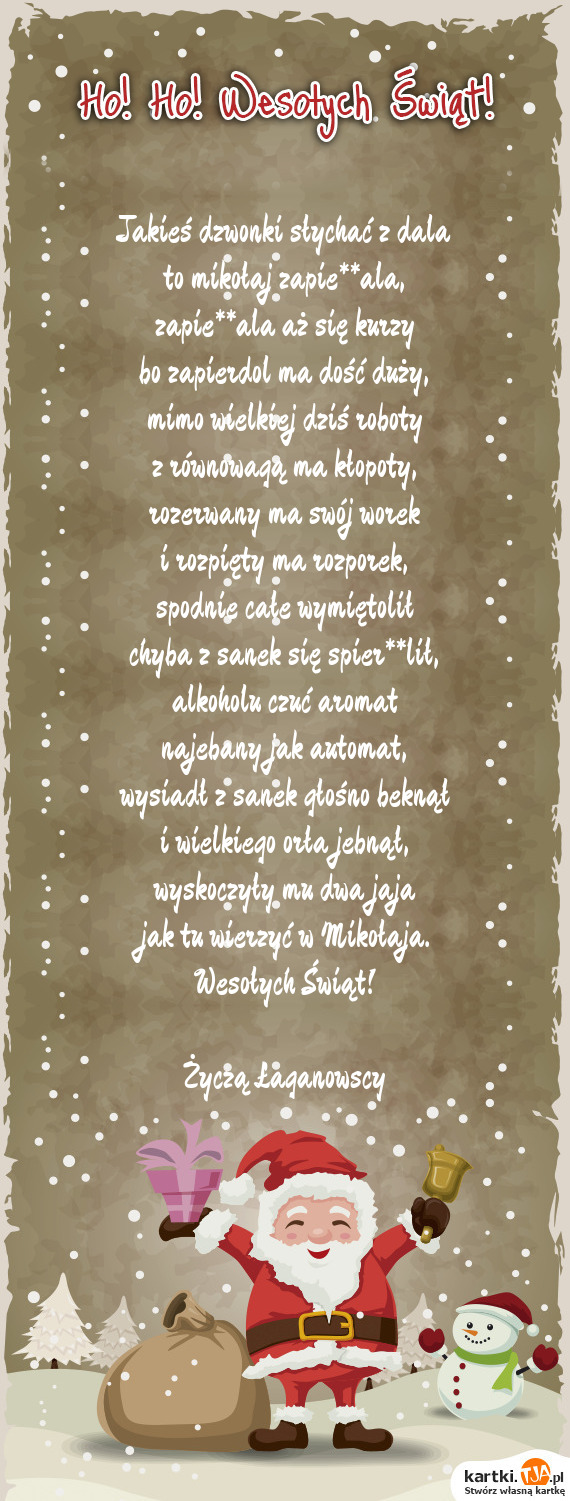 Ho! Ho! Wesołych Świąt!
Jakieś dzwonki słychać z dala
to mikołaj zapie**ala,
zapie**ala aż się kurzy
bo zapierdol ma dość duży,
mimo wielkiej dziś roboty
z równowagą ma kłopoty,
rozerwany ma swój worek
i rozpięty ma rozporek,
spodnie całe wymiętolił
chyba z sanek się spier**lił,
alkoholu czuć aromat
najebany jak automat,
wysiadł z sanek głośno beknął
i wielkiego orła jebnął,
wyskoczyły mu dwa jaja
jak tu wierzyć w Mikołaja.
Wesołych Świąt!
Życzą Łaganowscy
kartki.TJA.pl
Stwórz własną kartkę